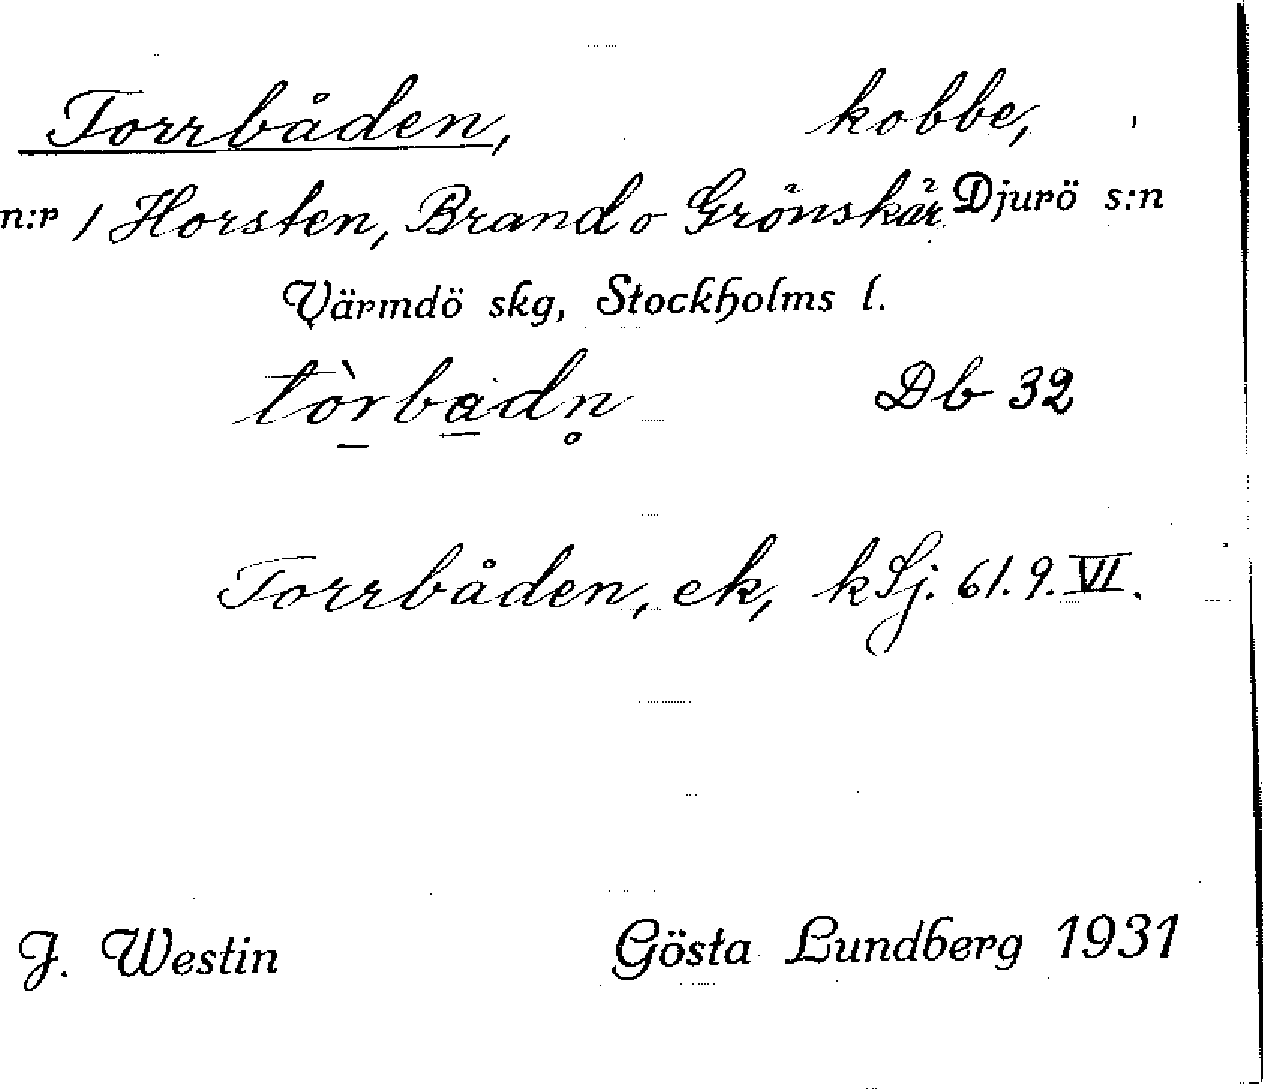 Torrbåden, kobbe,
n:r 1 Horsten, Brand o Grönskär Djurö s:n
Värmdö skg, Stockholms l.
tòrbadn̥ Db 32
Torrbåden, ek, kSj. 61.9.VI.
J. Westin Gösta Lundberg 1931